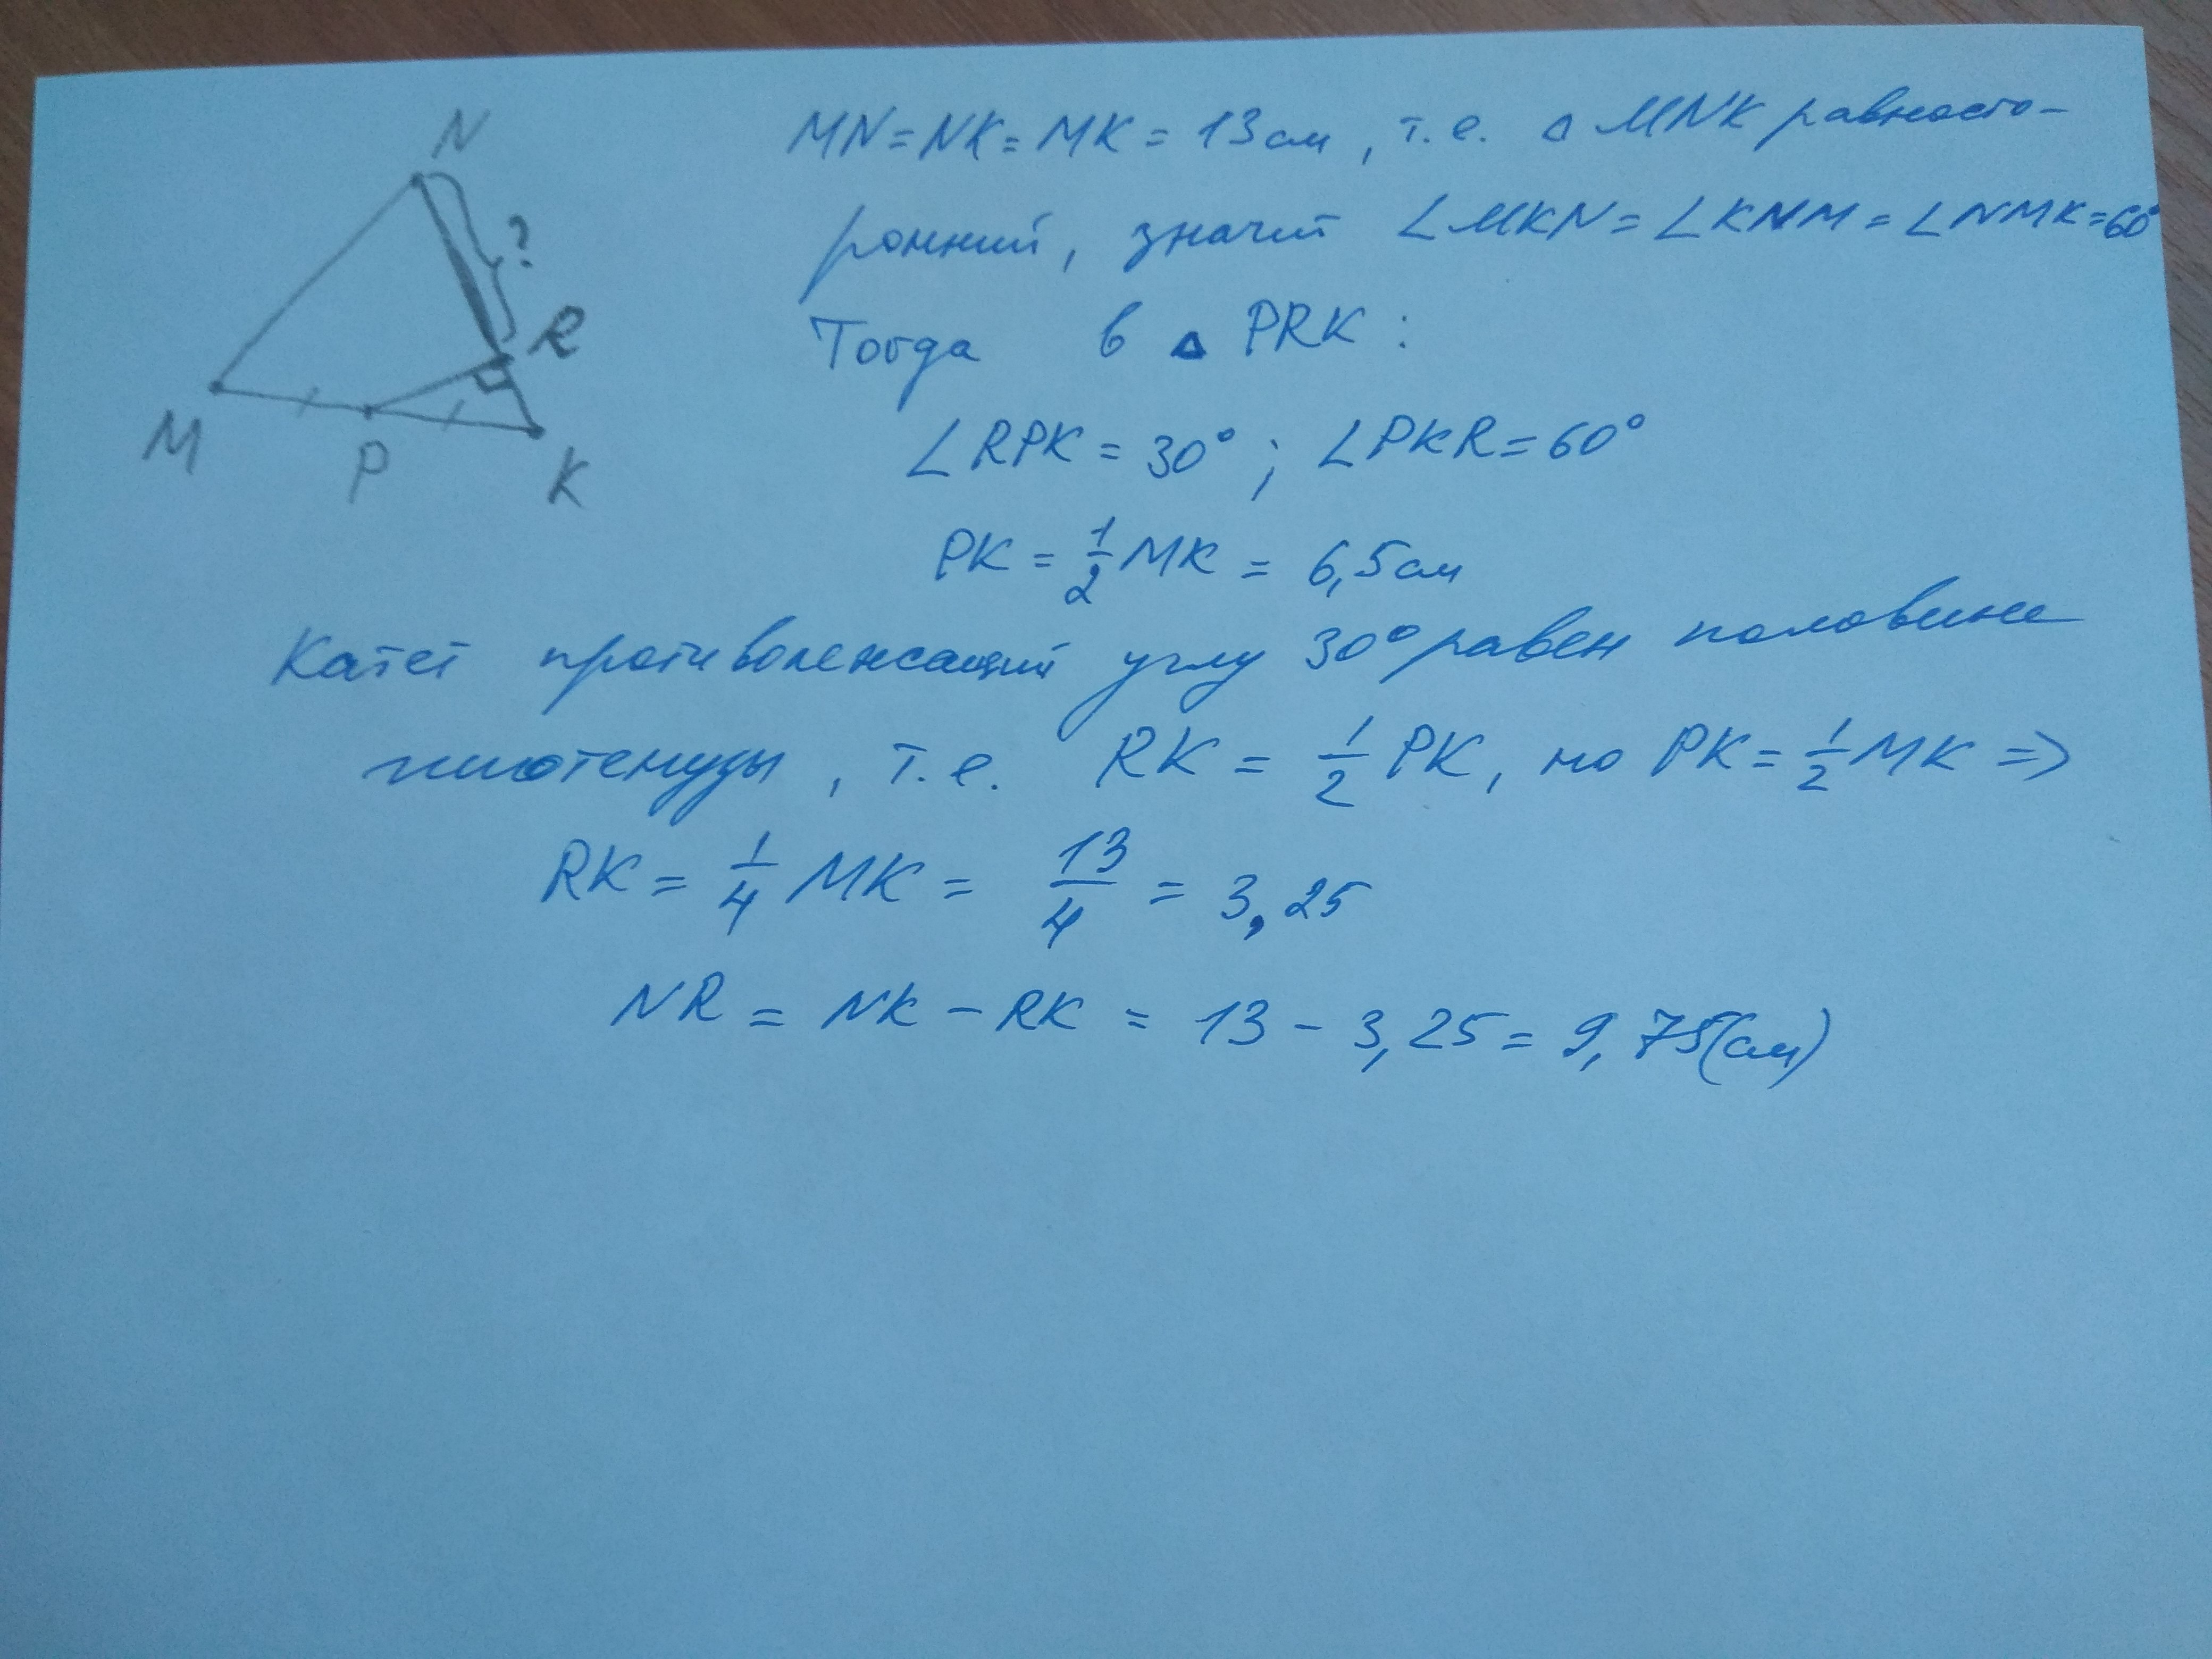 N
?
R
M
P
K
MN = NK = MK = 13 см, т.е. △ MNK равносто-
ронний, значит ∠MKN = ∠KNM = ∠NMK = 60°
Тогда в △ PRK:
∠RPK = 30°; ∠PKR = 60°
PK = 1/2 MK = 6,5 см
Катет противолежащий углу 30° равен половине
гипотенузы, т.е. RK = 1/2 PK, но PK = 1/2 MK ⇒
RK = 1/4 MK = 13/4 = 3,25
NR = NK - RK = 13 - 3,25 = 9,75 (см)